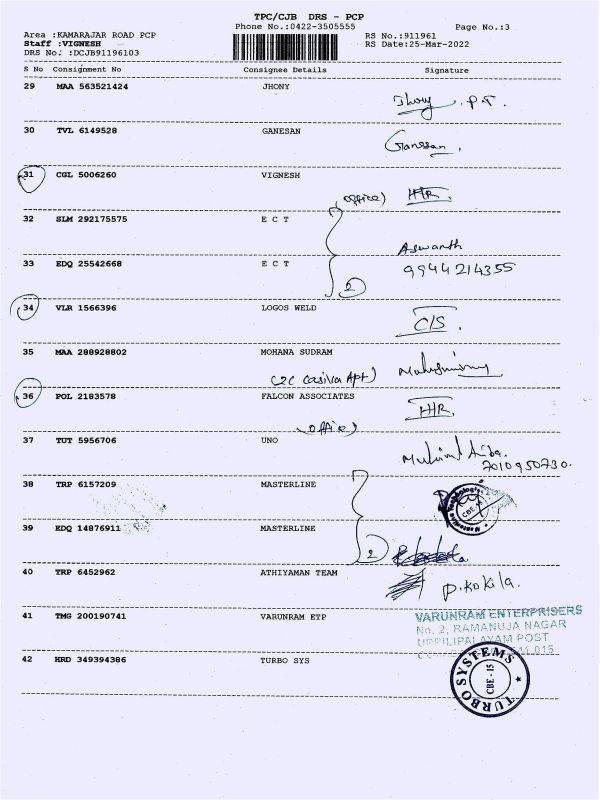 TPC/CJB DRS - PCP
Phone No.:0422-3505555
Page No.:3
Area :KAMARAJAR ROAD PCP
RS No.:911961
Staff :VIGNESH
RS Date:25-Mar-2022
DRS No. :DCJB91196103
S No Consignment No Consignee Details Signature
29 MAA 563521424 JHONY
Jhony P.T.
30 TVL 6149528 GANESAN
Ganesan.
31 CGL 5006260 VIGNESH
(office) HR.
32 SLM 292175575 E C T
Aswanth
33 EDQ 25542668 E C T
9944214355
2
34 VLR 1566396 LOGOS WELD
C/S.
35 MAA 288928802 MOHANA SUDRAM
(2C Casiva Apt)
36 POL 2183578 FALCON ASSOCIATES
HR.
(office)
37 TUT 5956706 UNO
7010950730.
38 TRP 6157209 MASTERLINE
CBE
39 EDQ 14876911 MASTERLINE
2
40 TRP 6452962 ATHIYAMAN TEAM
P.Kokila.
41 TMG 200190741 VARUNRAM ETP
VARUNRAM ENTERPRISERS
No. 2, RAMANUJA NAGAR
UPPILIPALAYAM POST
641 015
42 HRD 349394386 TURBO SYS
TURBO SYSTEMS
CBE-15